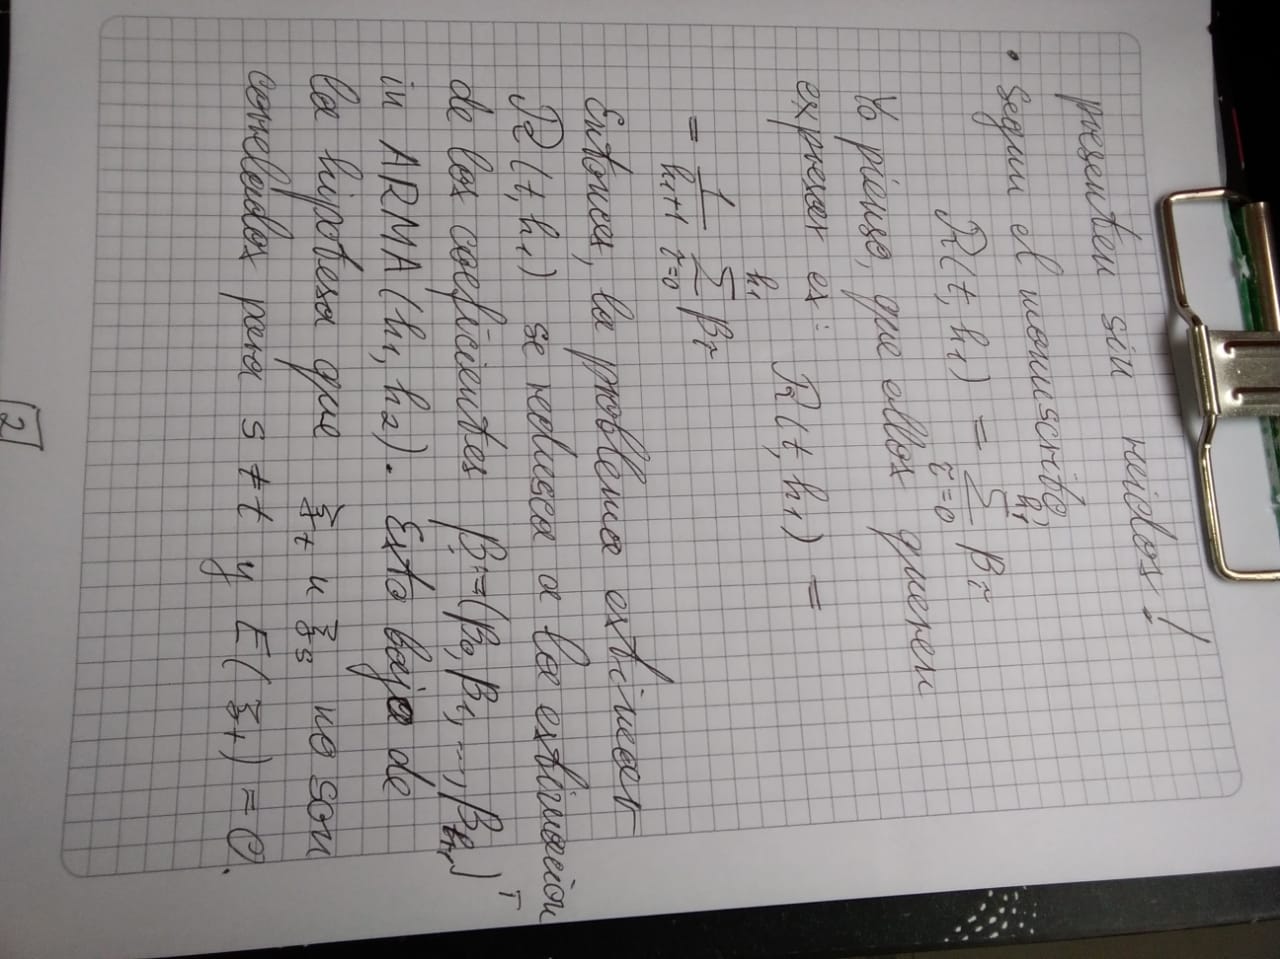 presenten sin ruidos!
• Segun el manuscrito,
R(t, h₁) = ∑_{τ=0}^{h₁} β_τ
Yo pienso, que ellos queren
expresar es: R(t, h₁) =
= 1/(h₁+1) ∑_{τ=0}^{h₁} β_τ
Entonces, la problema estimar
R(t, h₁) se redusca a la estimacion
de los coeficientes β := (β₀, β₁, ..., β_{h₁})ᵀ
in ARMA(h₁, h₂). Esto bajo de
la hipotesa que ξ_t u ξ_s no son
correlados para s ≠ t y E(ξ_t) = 0.
2